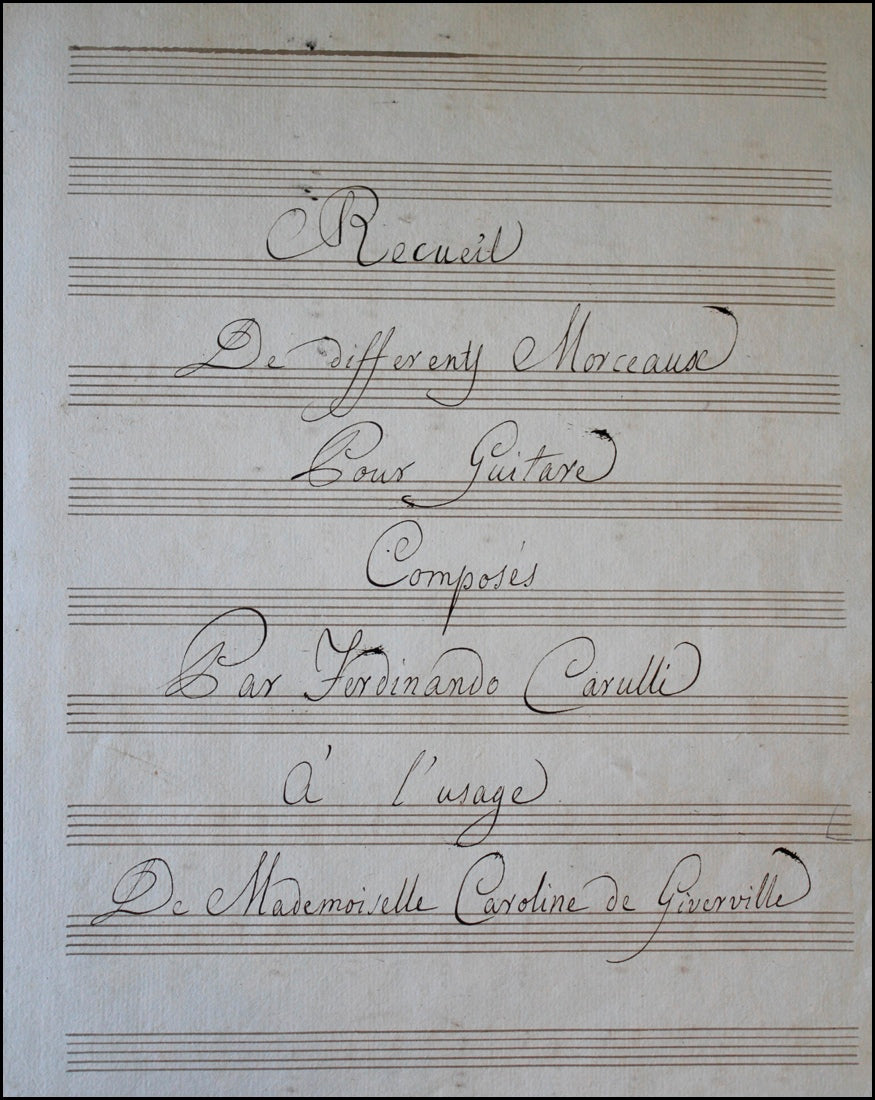 Recueil
De differents Morceaux
Pour Guitare
Composés
Par Ferdinando Carulli
À l'usage
De Mademoiselle Caroline de Giverville